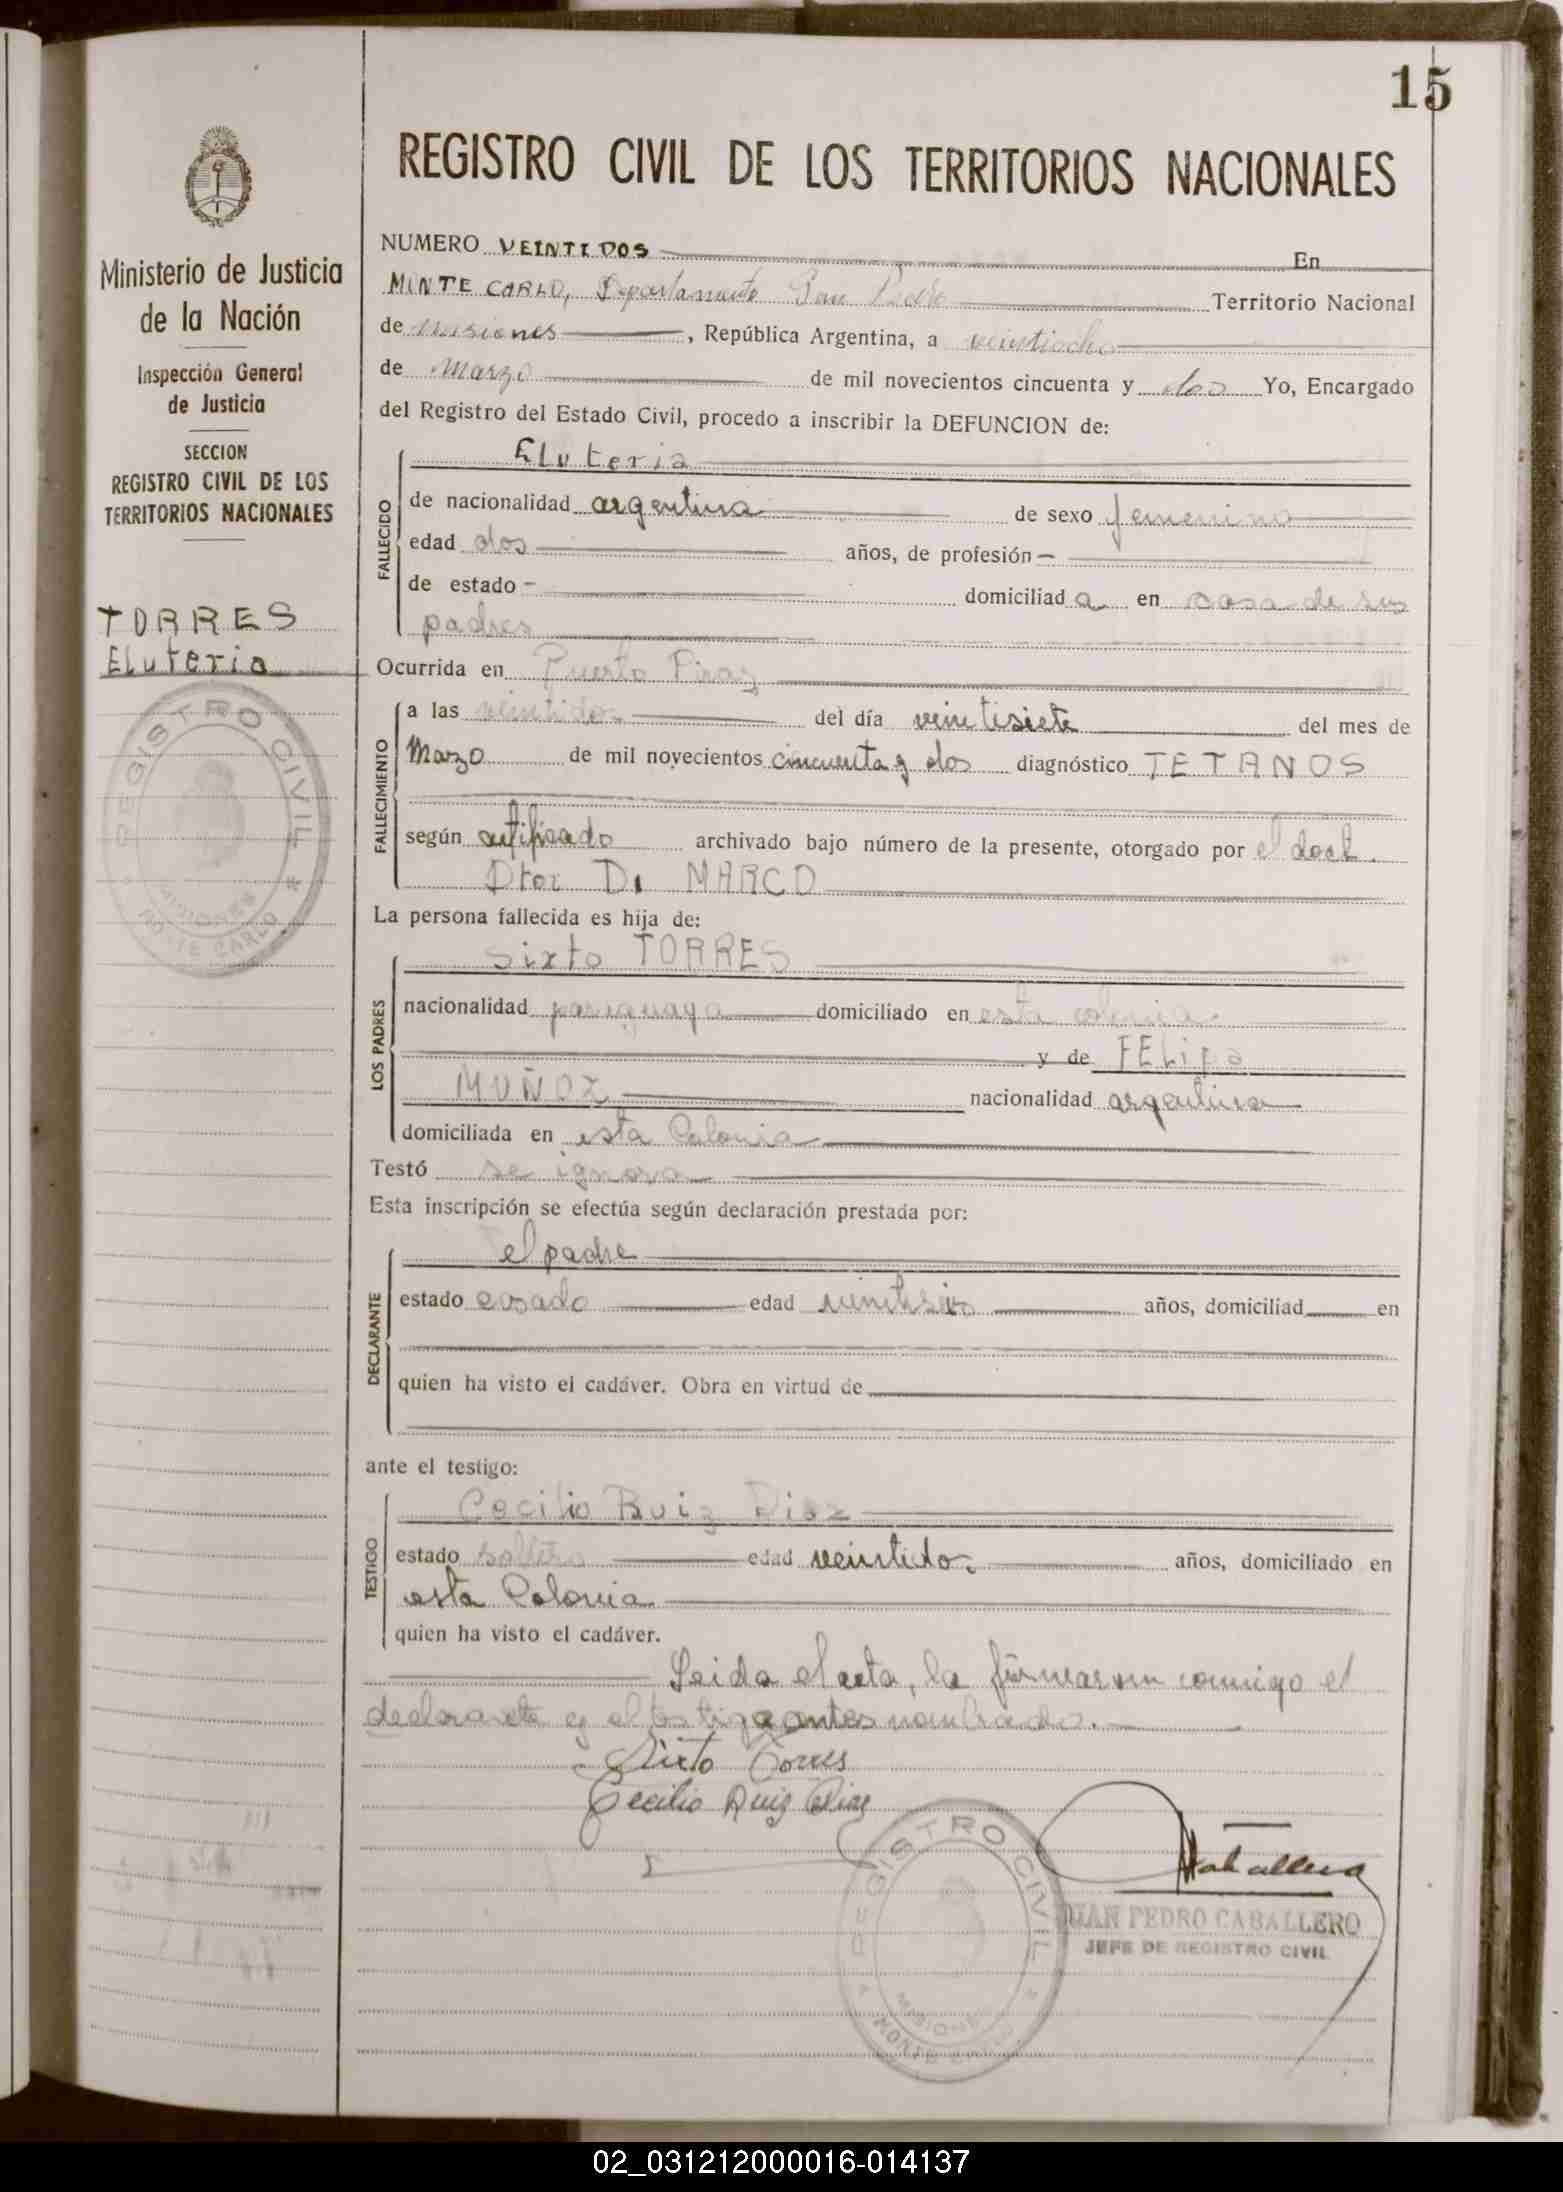 15
REGISTRO CIVIL DE LOS TERRITORIOS NACIONALES
Ministerio de Justicia
de la Nación
Inspección General
de Justicia
SECCION
REGISTRO CIVIL DE LOS
TERRITORIOS NACIONALES
TORRES
Eluteria
REGISTRO CIVIL
MISIONES
MONTE CARLO
NUMERO VEINTIDOS En
MONTE CARLO, Departamento San Pedro Territorio Nacional
de Misiones, República Argentina, a veintiocho
de Marzo de mil novecientos cincuenta y dos Yo, Encargado
del Registro del Estado Civil, procedo a inscribir la DEFUNCION de:
FALLECIDO
Eluteria
de nacionalidad argentina de sexo femenino
edad dos años, de profesión —
de estado — domiciliad a en casa de sus
padres
Ocurrida en Puerto Piray
FALLECIMIENTO
a las veintidos del día veintisiete del mes de
Marzo de mil novecientos cincuenta y dos diagnóstico TETANOS
según certificado archivado bajo número de la presente, otorgado por el doct.
Dtor Di MARCO
La persona fallecida es hija de:
LOS PADRES
Sixto TORRES
nacionalidad paraguaya domiciliado en esta colonia
y de FELIPA
MUÑOZ nacionalidad argentina
domiciliada en esta Colonia
Testó se ignora
Esta inscripción se efectúa según declaración prestada por:
DECLARANTE
el padre
estado casado edad veintiseis años, domiciliad en
quien ha visto el cadáver. Obra en virtud de
ante el testigo:
TESTIGO
Cecilio Ruiz Diaz
estado soltero edad veintidos años, domiciliado en
esta Colonia
quien ha visto el cadáver.
Leida el acta, la firmaron conmigo el
declarante y el testigo antes nombrado.
Sixto Torres
Cecilio Ruiz Diaz
REGISTRO CIVIL
MISIONES
MONTE CARLO
Caballero
JUAN PEDRO CABALLERO
JEFE DE REGISTRO CIVIL
02_031212000016-014137